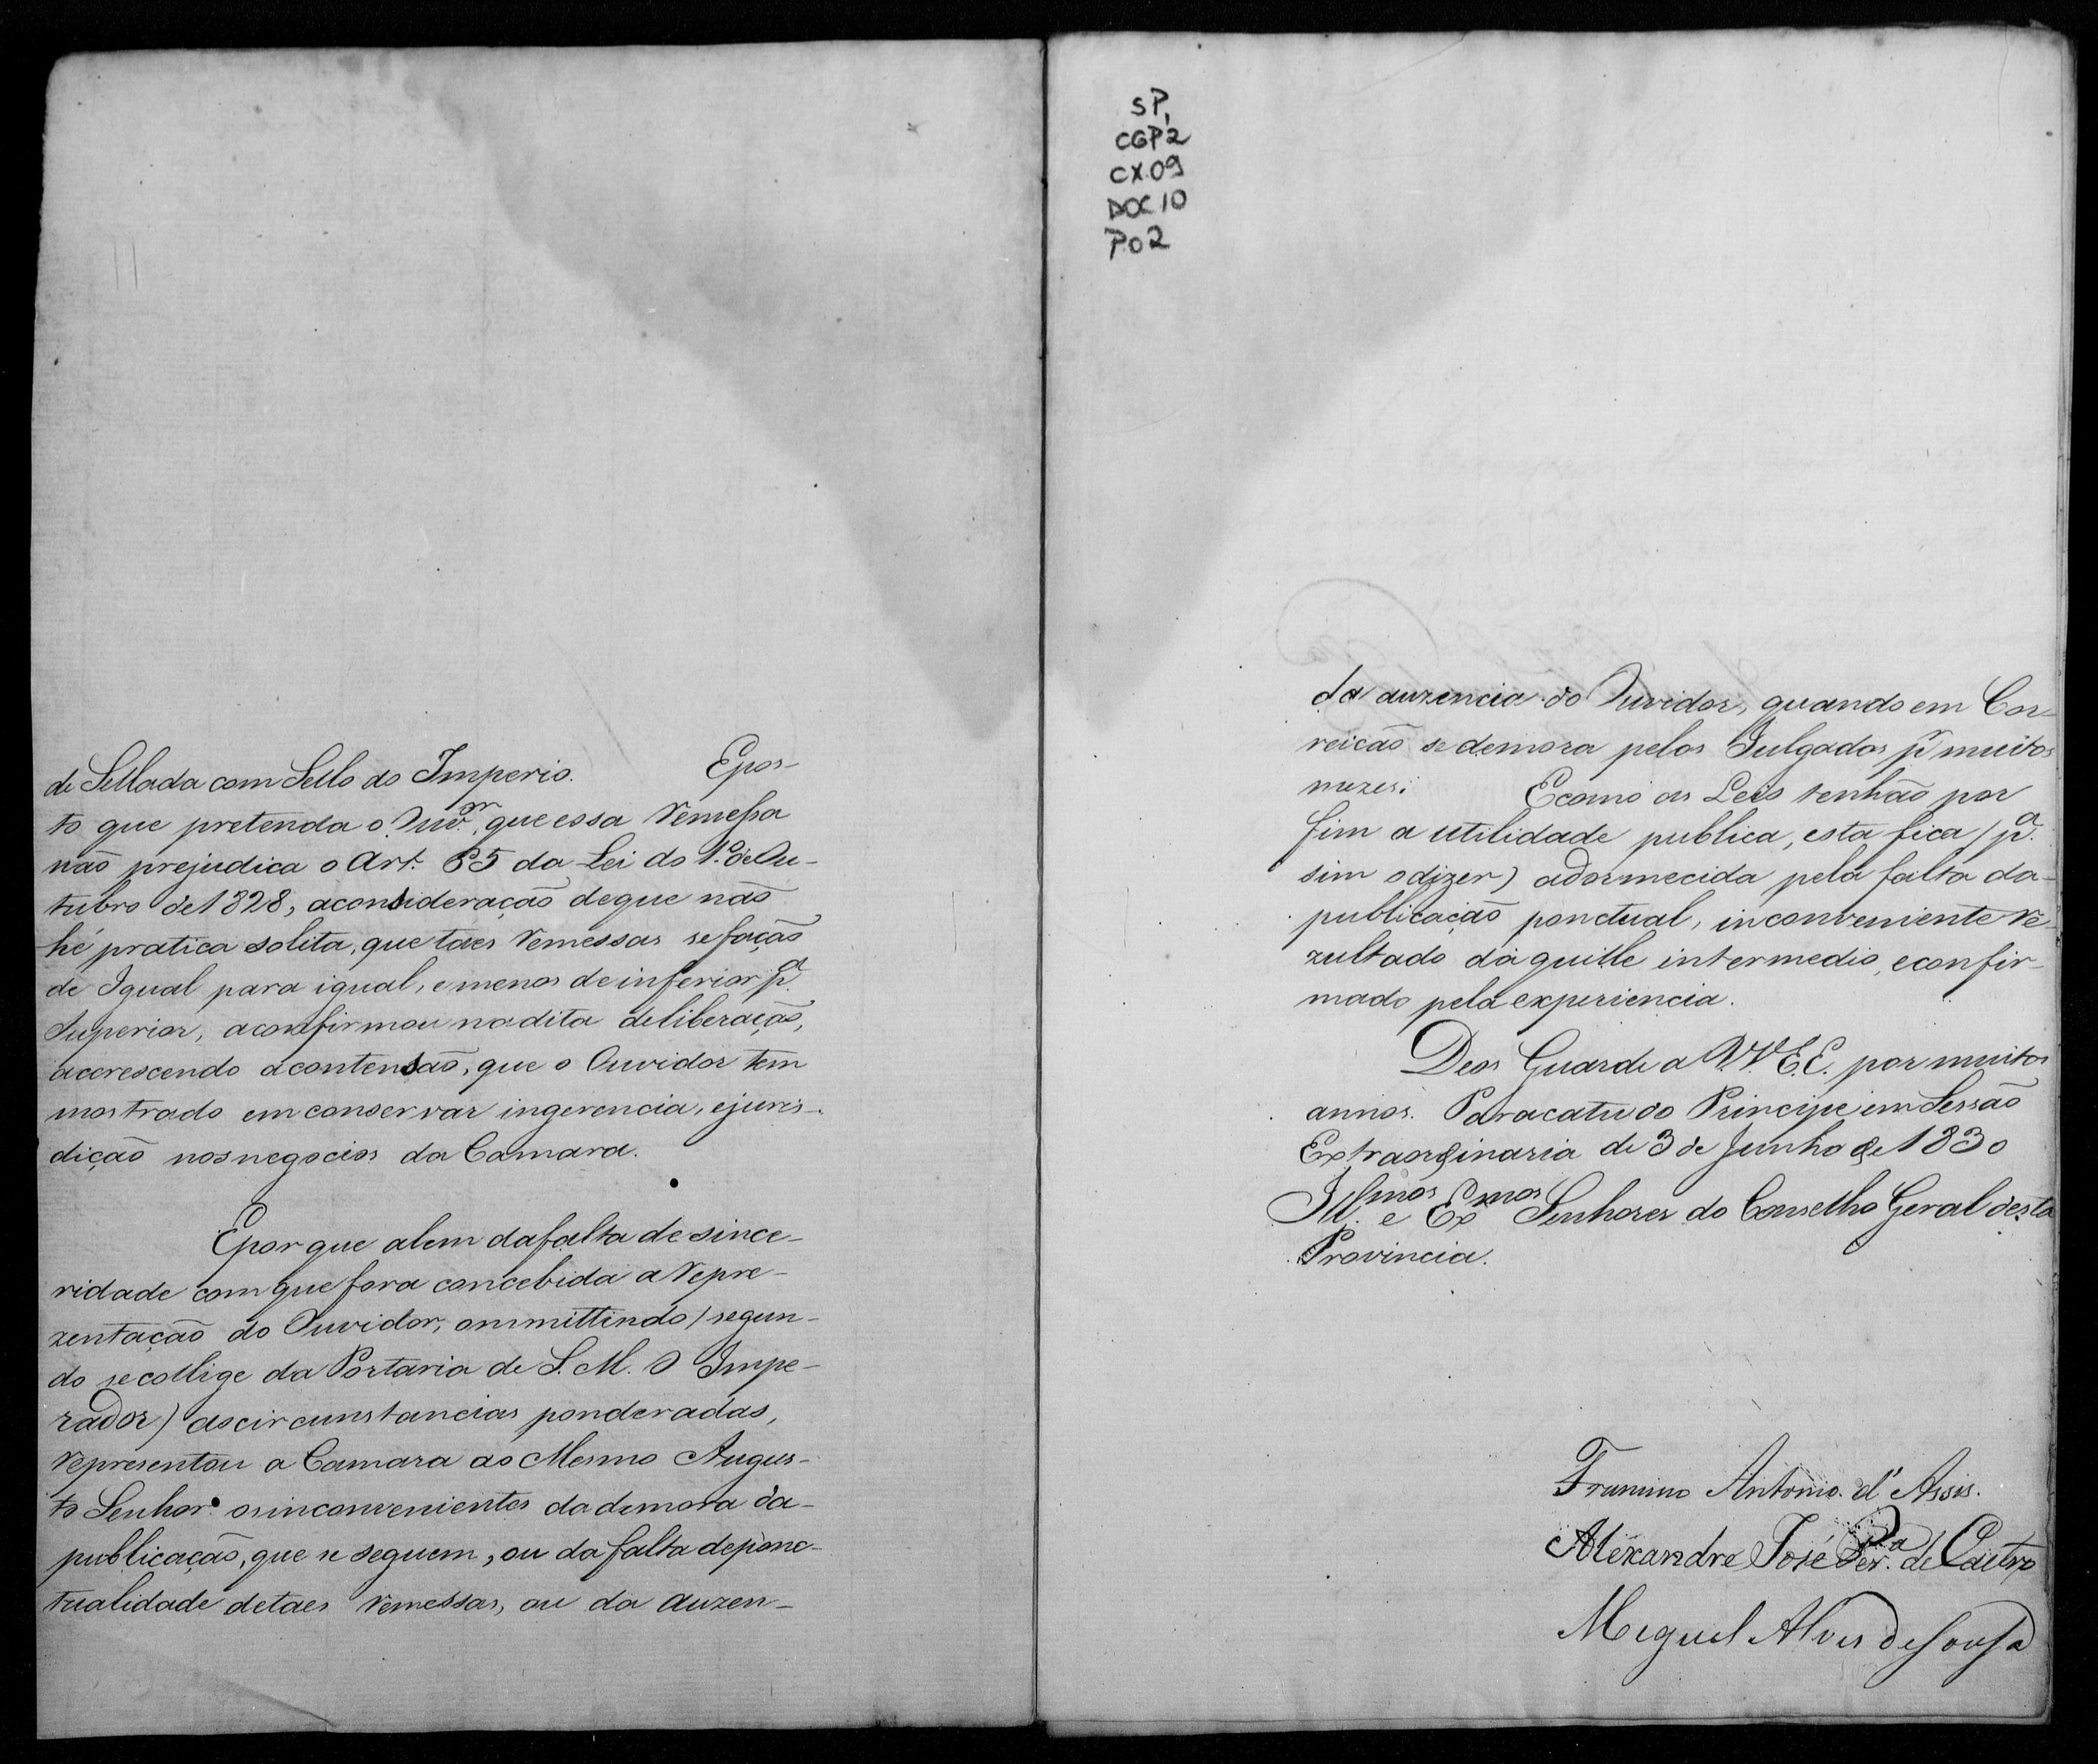 de Sellada com Sello do Imperio. Epos-
to que pretenda o Ouv.or, que essa remessa
não prejudica o Art. 65 da Lei do 1.º de Ou-
tubro de 1828, aconsideração deque não
hé pratica solita, que taes remessas sefação
de Igual para igual, e menos de inferior p.a
Superior, aconfirmou nadita deliberação,
accrescendo acontensão, que o Ouvidor tem
mostrado em conservar ingerencia, ejuris-
dição nosnegocios da Camara.
Eporque alem dafalta de since-
ridade com que fora concebida a repre-
zentação do Ouvidor, ommittindo / segun-
do se collige da Portaria de S. M. O Impe-
rador) ascircunstancias ponderadas,
representou a Camara ao Mesmo Augus-
to Senhor osinconvenientes dademora da-
publicação, que se seguem, ou da falta deponc-
tualidade detaes remessas, ou da auzen-
SP,
CGP2
CX.09
DOC 10
P.02
da auzencia do Ouvidor, quando em Cor-
reicão se demora pelos Julgados p.r muitos
mezes; Ecomo as Leis tenhão por
fim a utilidade publica, esta fica / p.a
sim odizer) adormecida pela falta da-
publicação ponctual, inconveniente re-
zultado daquille intermedio, econfir-
mado pela experiencia.
Deos Guarde a VV. E.E. por muitos
annos. Paracatu do Principe em Sessão
Extraordinaria de 3 de Junho de 1830
Ill.mos e Ex.mos Senhores do Conselho Geral desta
Provincia.
Antonio d'Assis.
Alexandre José Per.a de Castro
Miguel Alves de Sousa